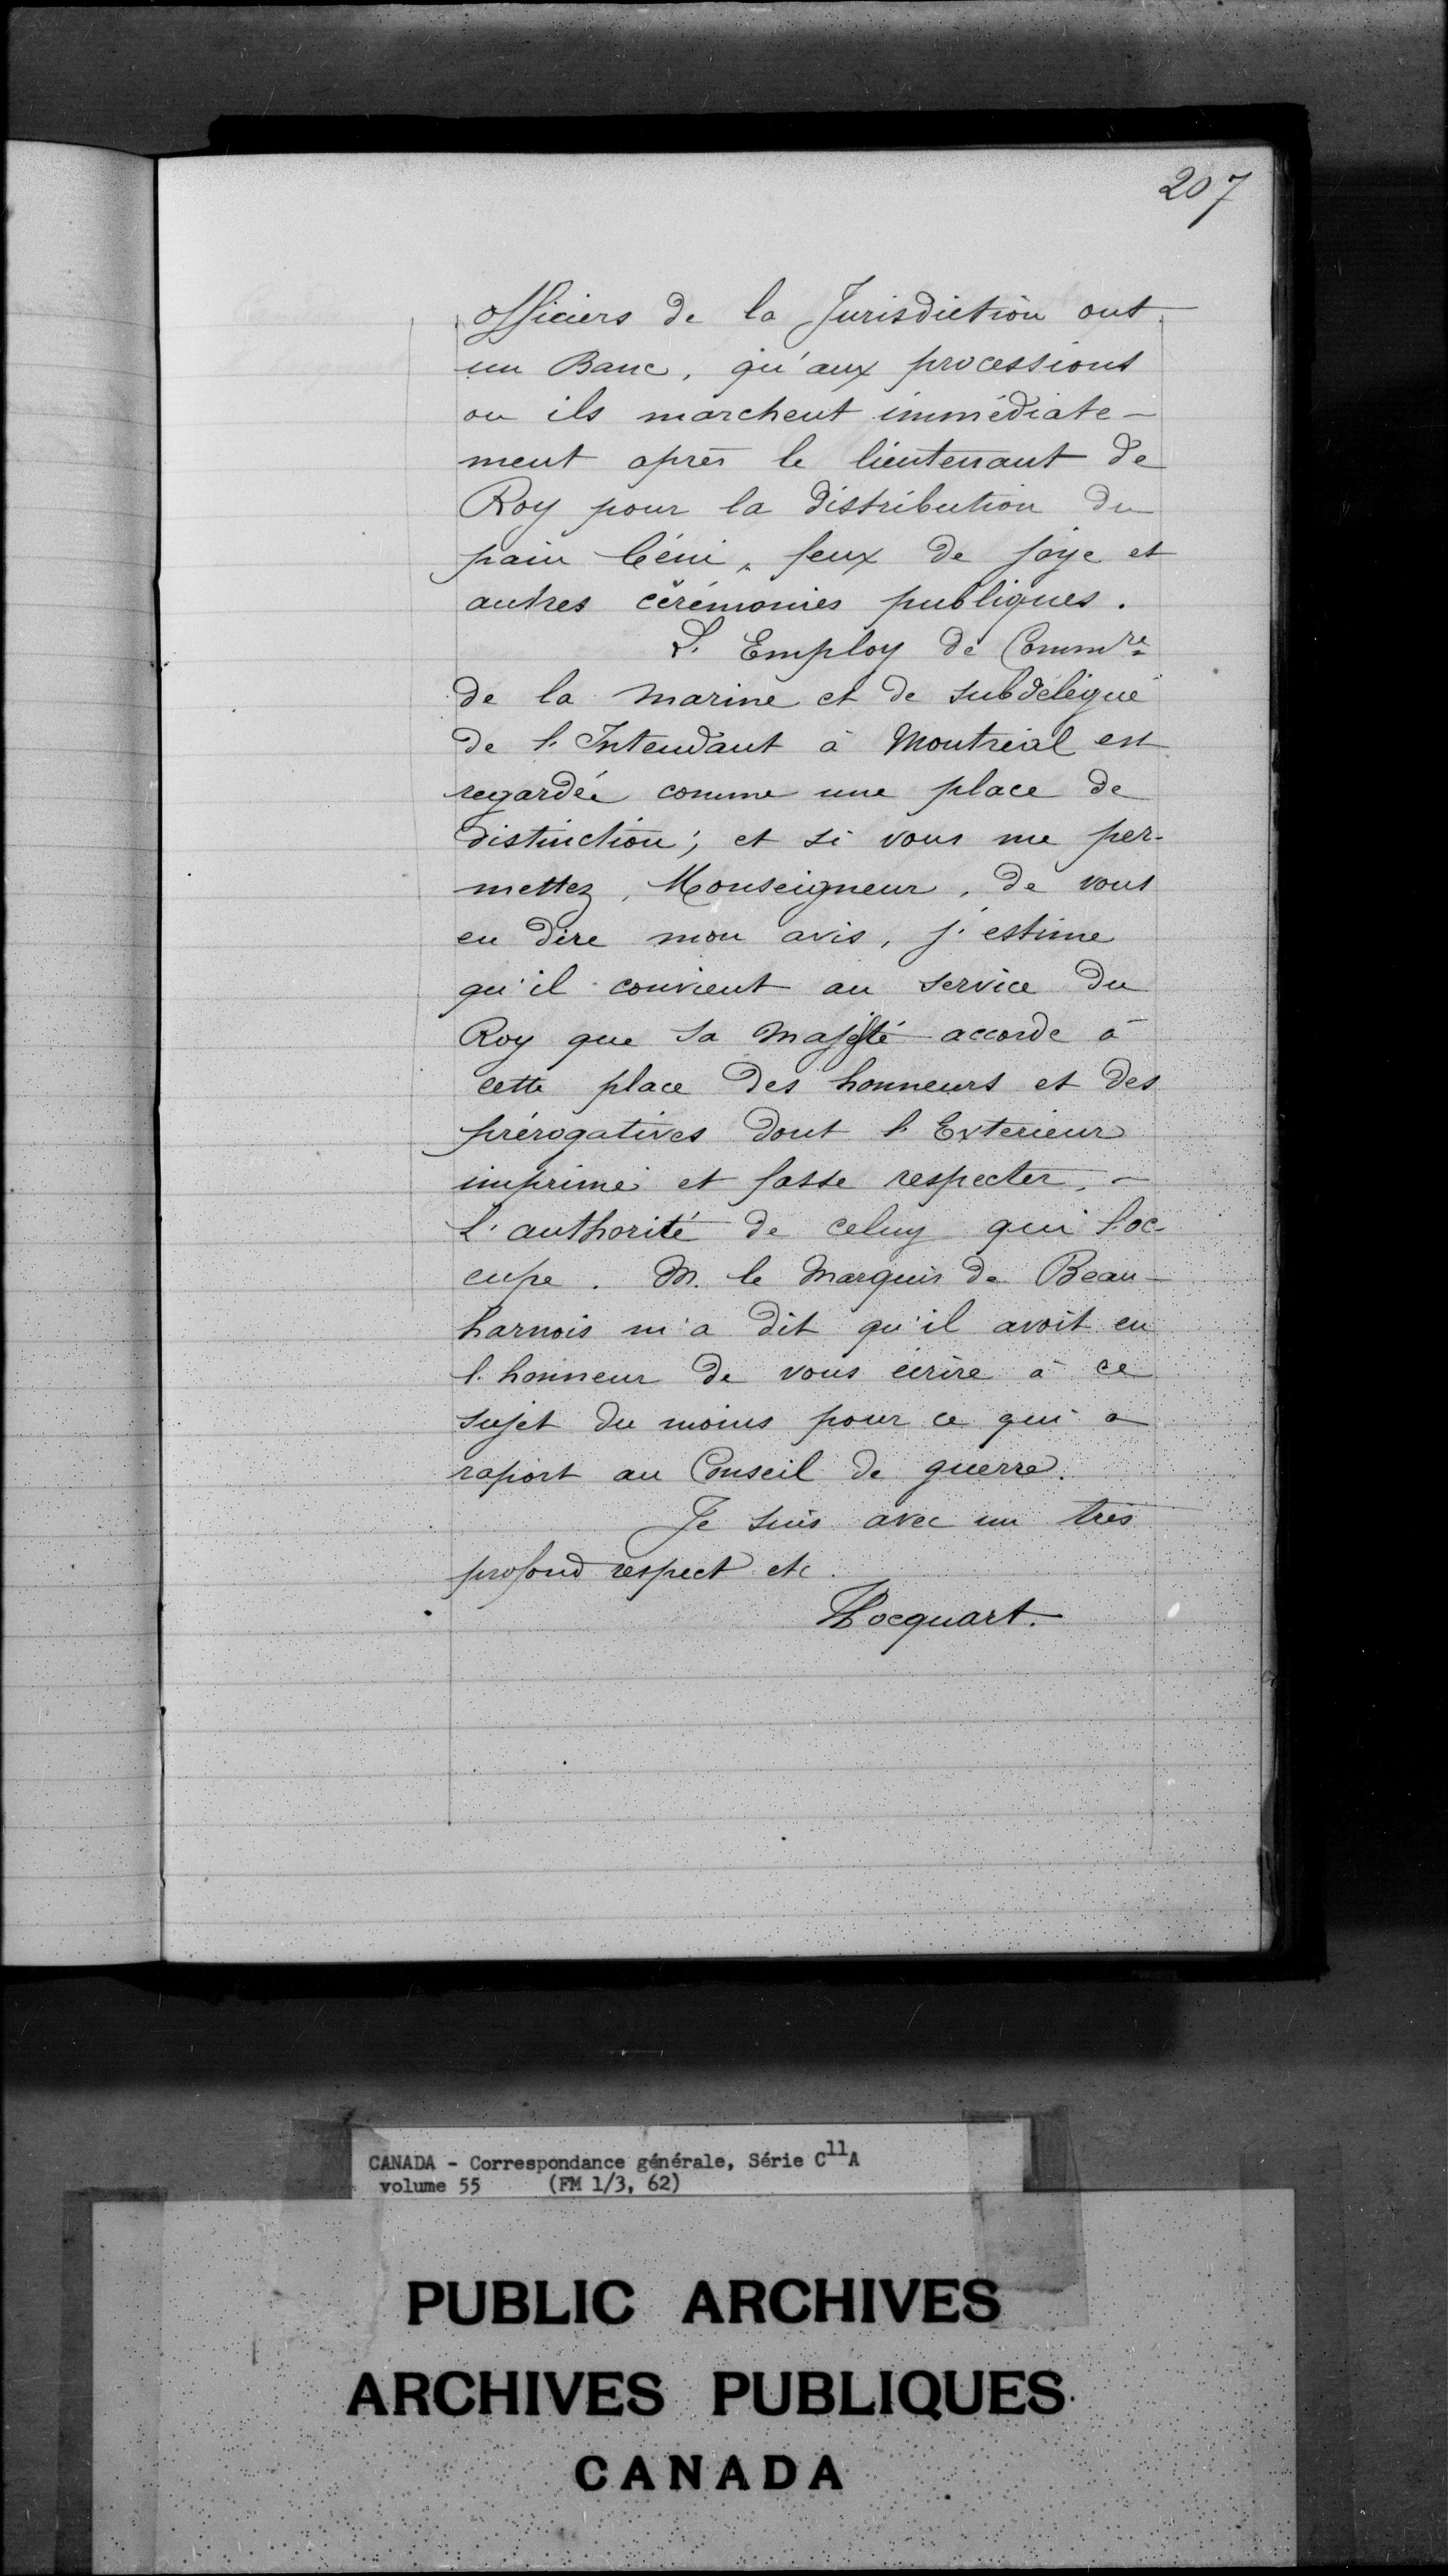 207
officiers de la Jurisdiction ont
un Banc, qu'aux processions
ou ils marchent immédiate-
ment après le lieutenant de
Roy pour la distribution du
pain béni, feux de joye et
autres cérémonies publiques.
L'Employ de Commre
de la marine et de subdélégué
de l'Intendant à Montréal est
regardée comme une place de
distinction; et si vous me per-
mettez, Monseigneur, de vous
en dire mon avis, j'estime
qu'il convient au service du
Roy que sa Majesté accorde à
cette place des honneurs et des
prérogatives dont l'Exterieur
imprime et fasse respecter, -
l'authorité de celuy qui l'oc-
cupe. M. le Marquis de Beau-
harnois m'a dit qu'il avoit eu
l'honneur de vous écrire à ce
sujet du moins pour ce qui a
raport au Conseil de guerre.
Je suis avec un très
profond respect etc.
Hocquart.
CANADA - Correspondance générale, Série C11A
volume 55 (FM 1/3, 62)
PUBLIC ARCHIVES
ARCHIVES PUBLIQUES
CANADA